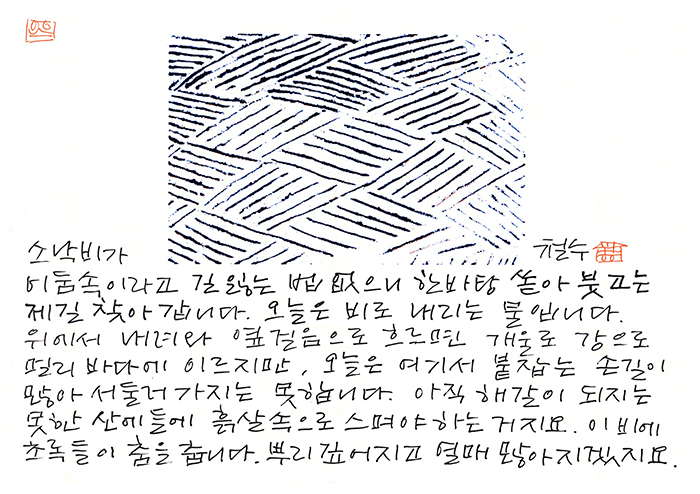 소낙비가
철수
어둠속이라고 길 잃는 법 없으니 한바탕 쏟아 붓고는
제길 찾아 갑니다. 오늘은 비로 내리는 물입니다.
위에서 내려와 옆걸음으로 흐르면 개울로 강으로
멀리 바다에 이르지만, 오늘은 여기서 붙잡는 손길이
많아 서둘러 가지는 못합니다. 아직 해갈이 되지는
못한 산에들에 흙살속으로 스며야 하는 거지요. 이 비에
초록들이 춤을 춥니다. 뿌리 깊어지고 열매 많아지겠지요.